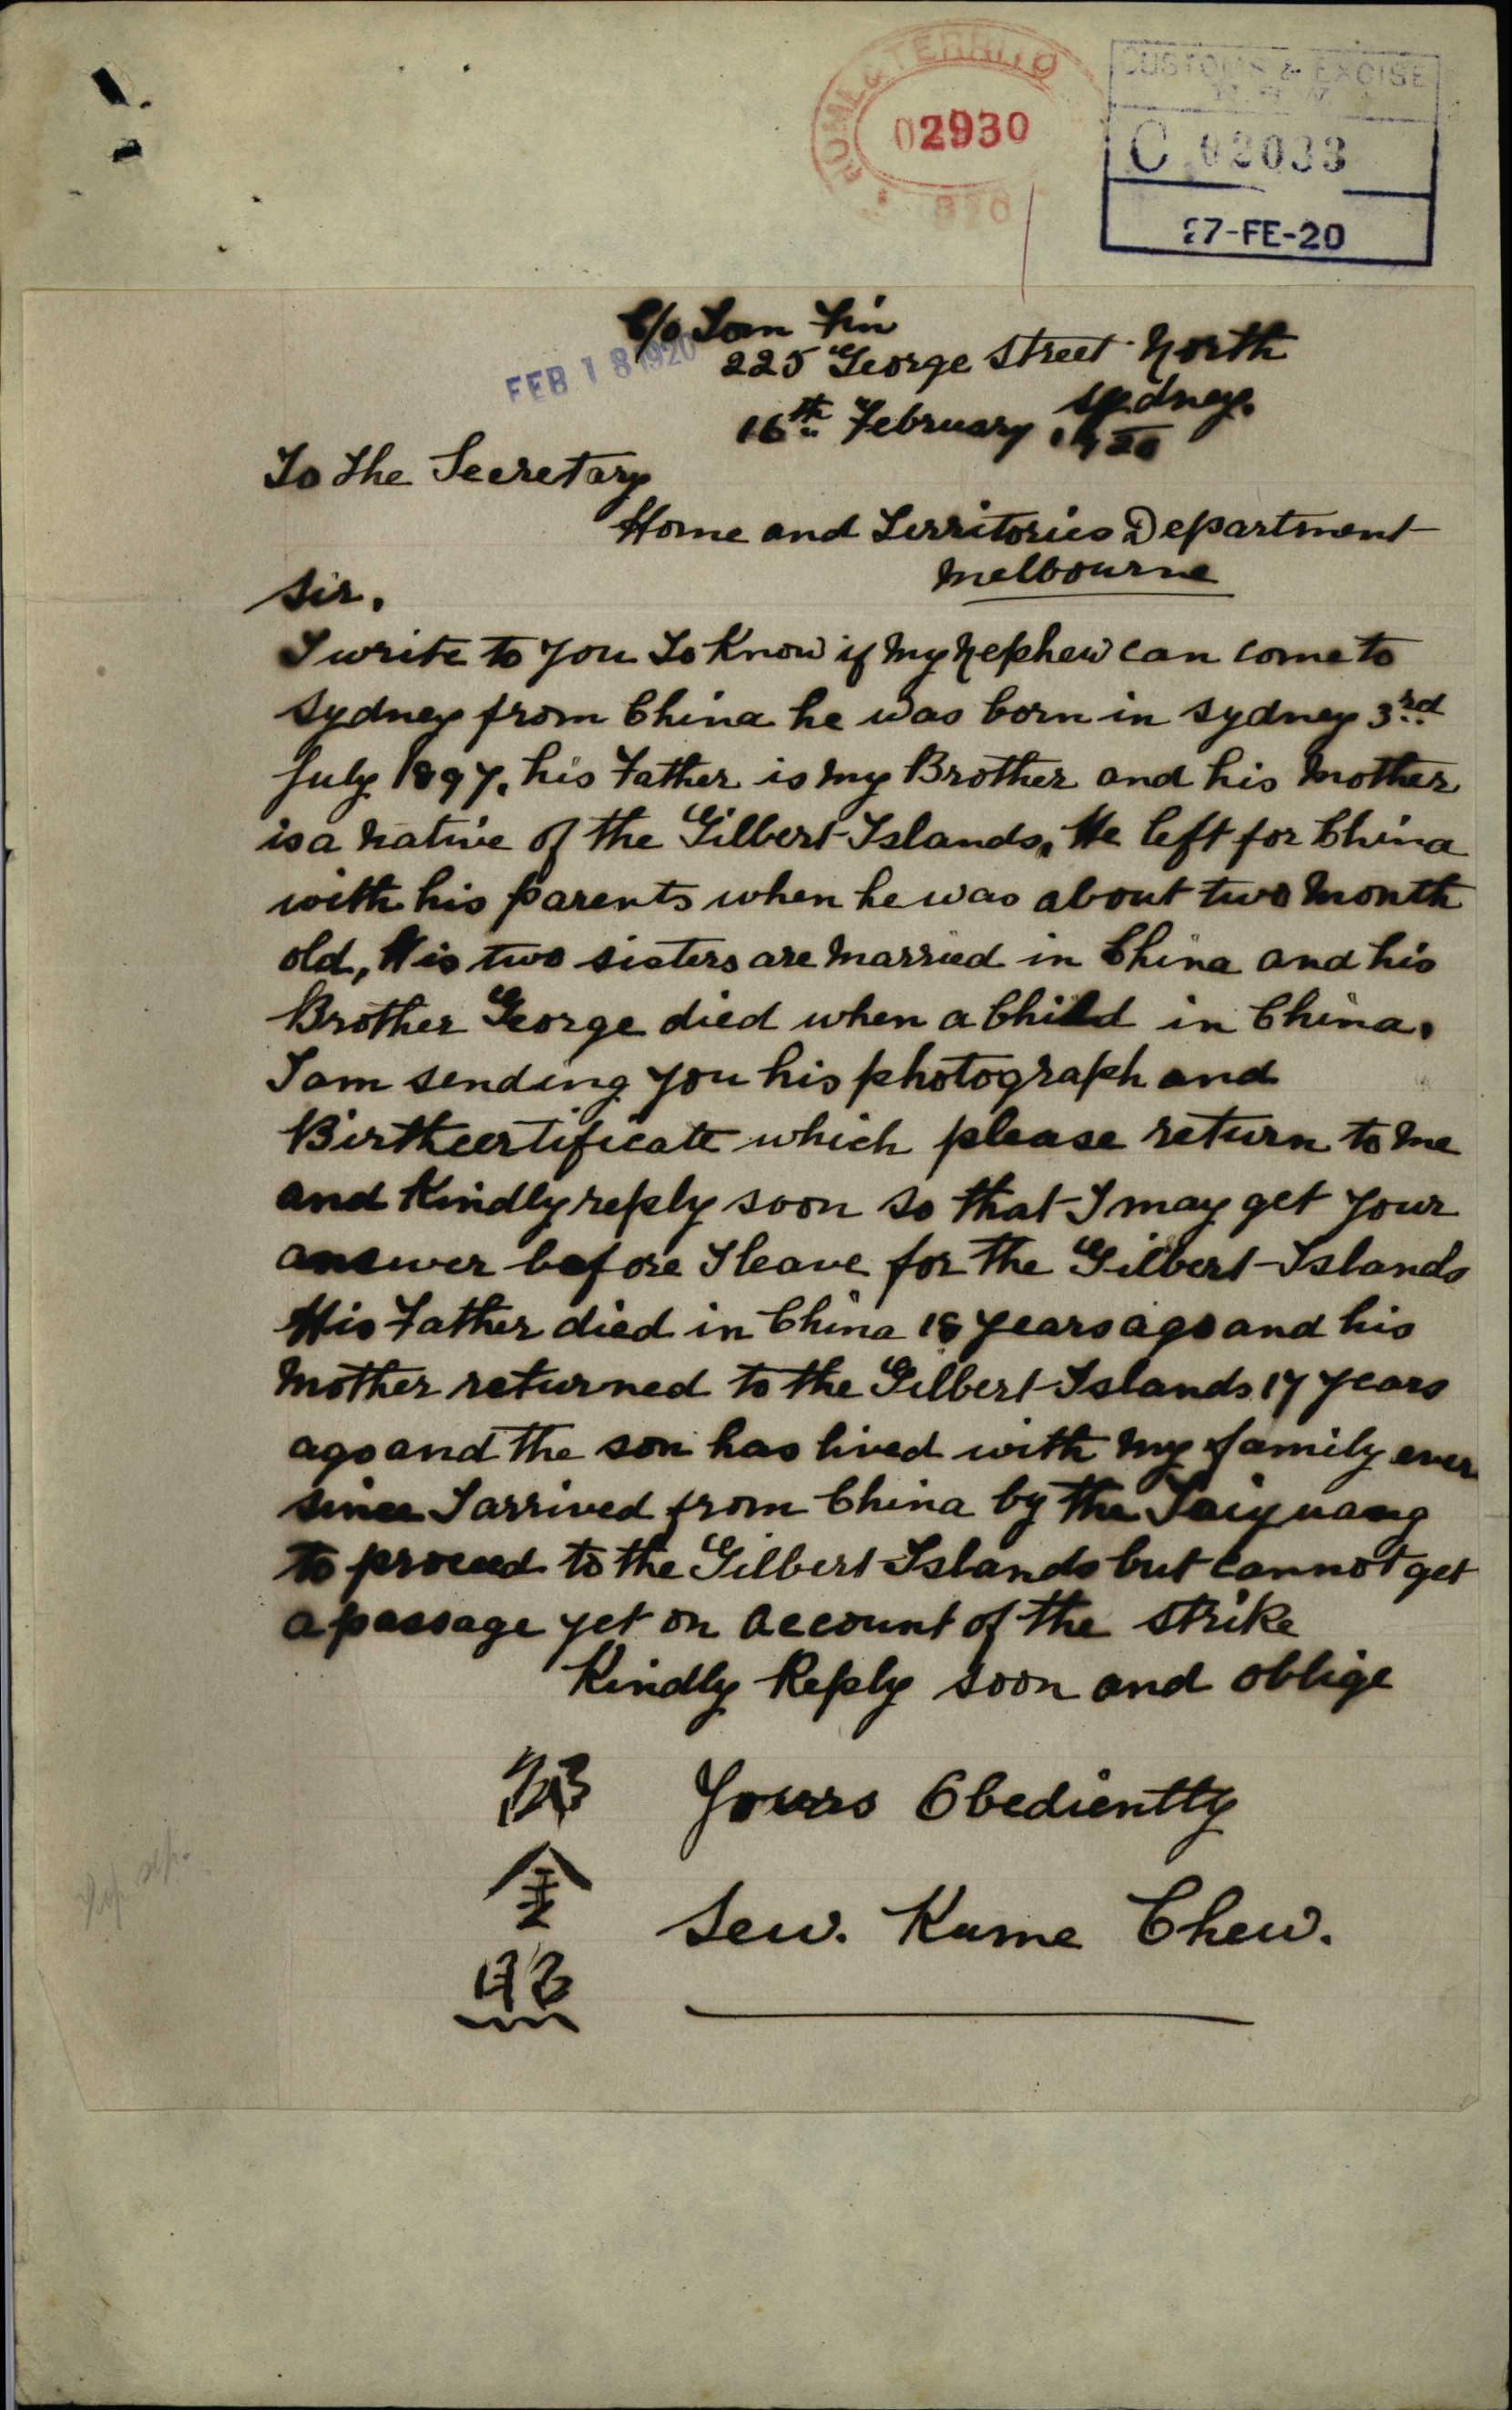 HOME & TERRITO
02930
920
CUSTOMS & EXCISE
C 02033
27-FE-20
FEB 18 1920
C/o Sam Kin
225 George Street North
Sydney.
16th February 1920
To the Secretary
Home and Territories Department
Melbourne
Sir.
I write to you To Know if My Nephew can come to
Sydney from China he was born in Sydney 3rd
July 1897, his Father is My Brother and his Mother
is a Native of the Gilbert Islands, He left for China
with his parents when he was about two Month
old, His two sisters are Married in China and his
Brother George died when a Child in China.
I am sending you his photograph and
Birthcertificate which please return to Me
and Kindly reply soon so that I may get your
answer before I leave for the Gilbert Islands
His Father died in China 18 years ago and his
Mother returned to the Gilbert Islands 17 years
ago and the son has lived with My family ever
since I arrived from China by the Taiyuang
to proceed to the Gilbert Islands but cannot get
a passage yet on account of the strike
Kindly Reply soon and oblige
Yours Obediently
Sew. Kume Chew.
金
照